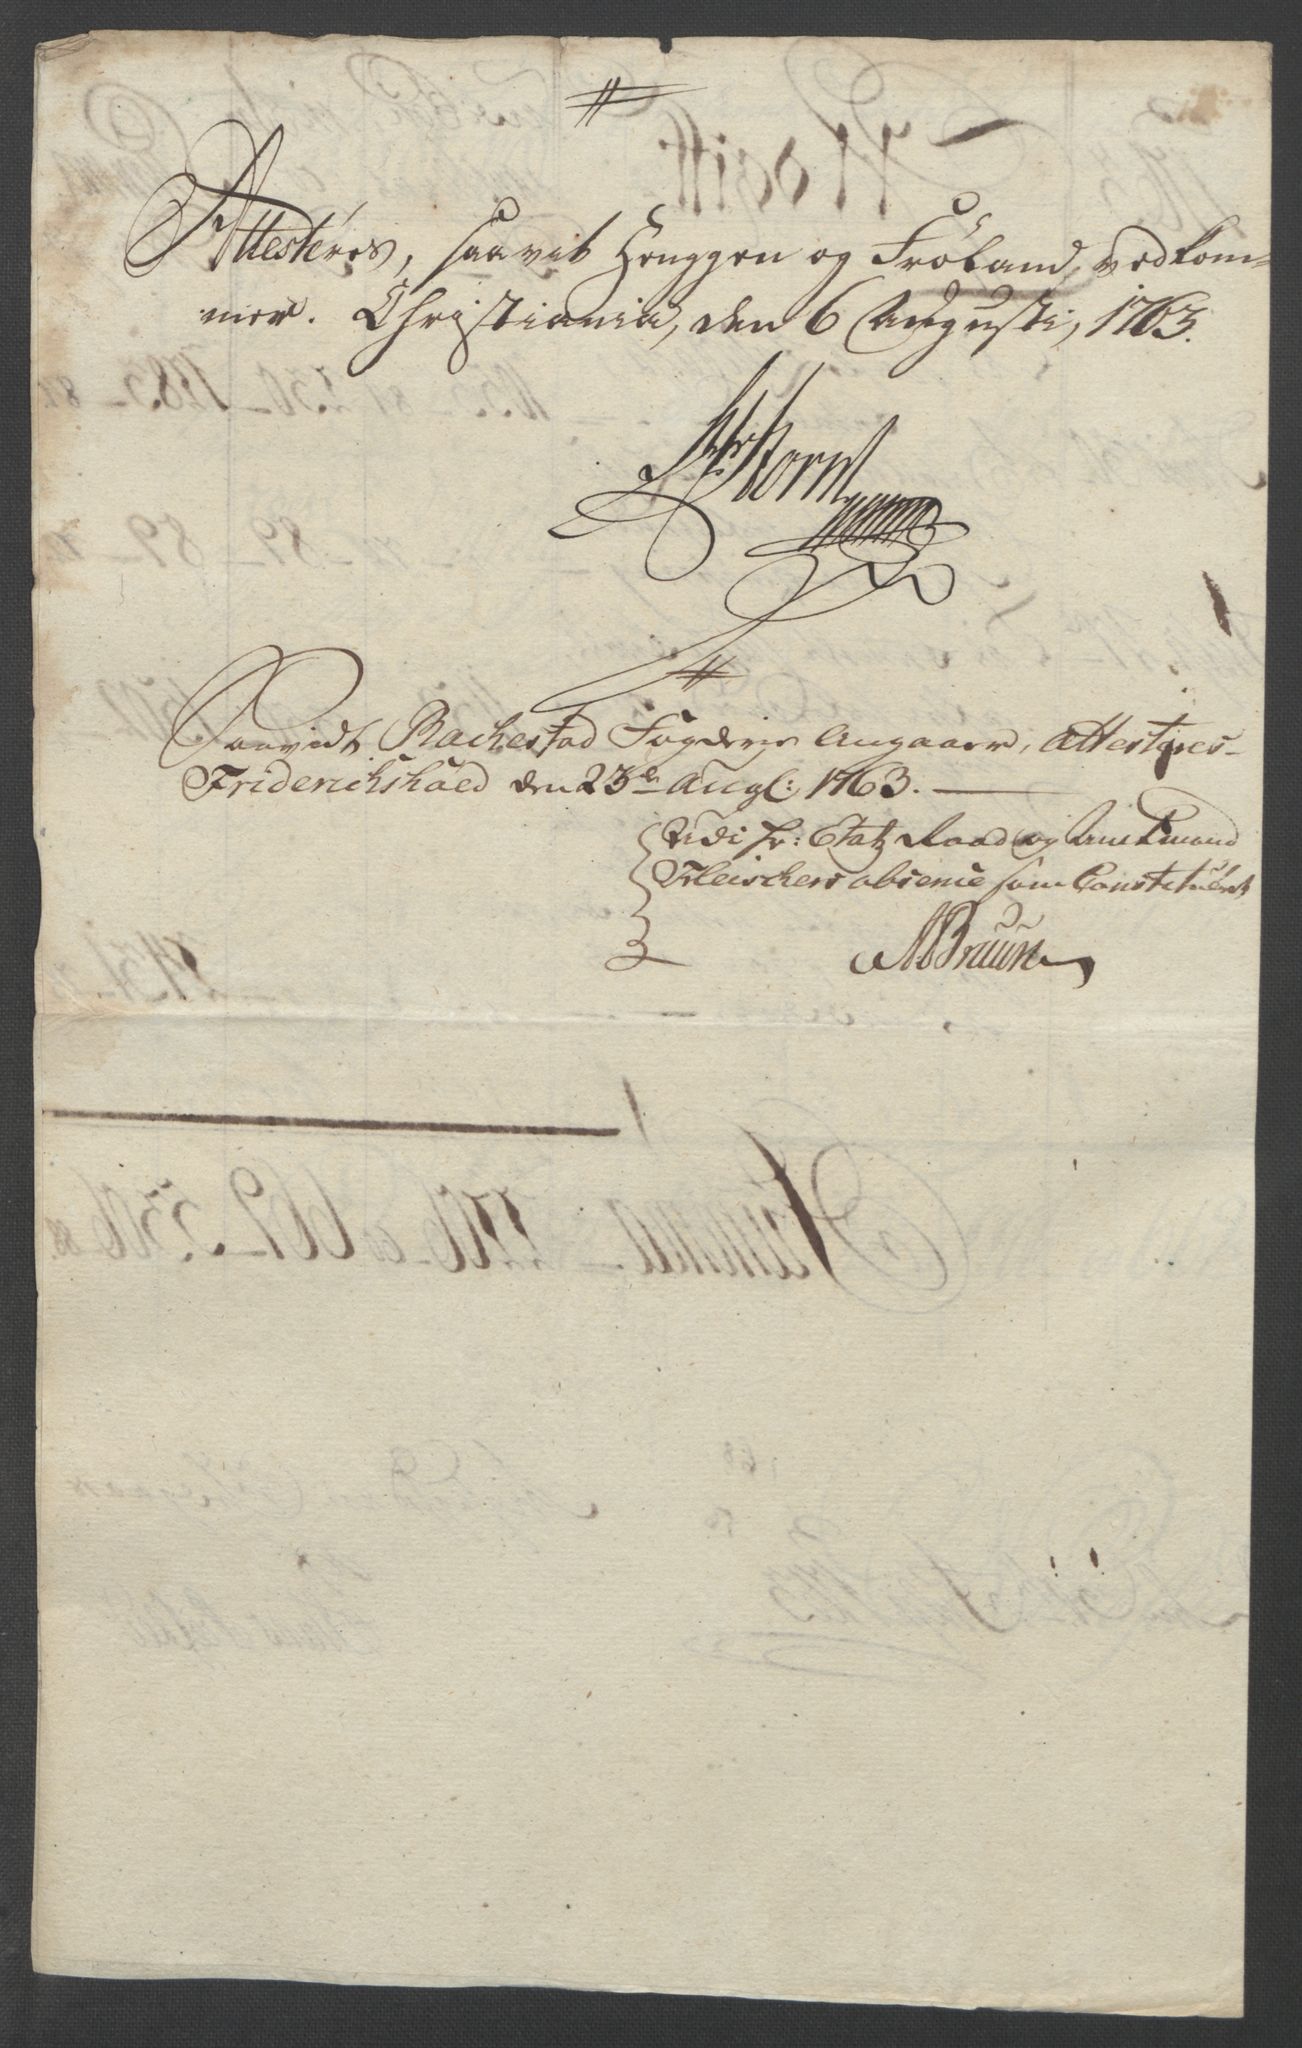 Attesteres, saavit Henggen og Fröland, vedkom-
mer. Christiania, den 6 Augusti, 1763.
Storm
Saavidt Rackestad Fogderie Angaaer, attesteres
Friderichshald den 23de Augl: 1763.
Udi Hr: Etatz Raad og Amtmand
Fleischers absence som Constitueret
MBruun